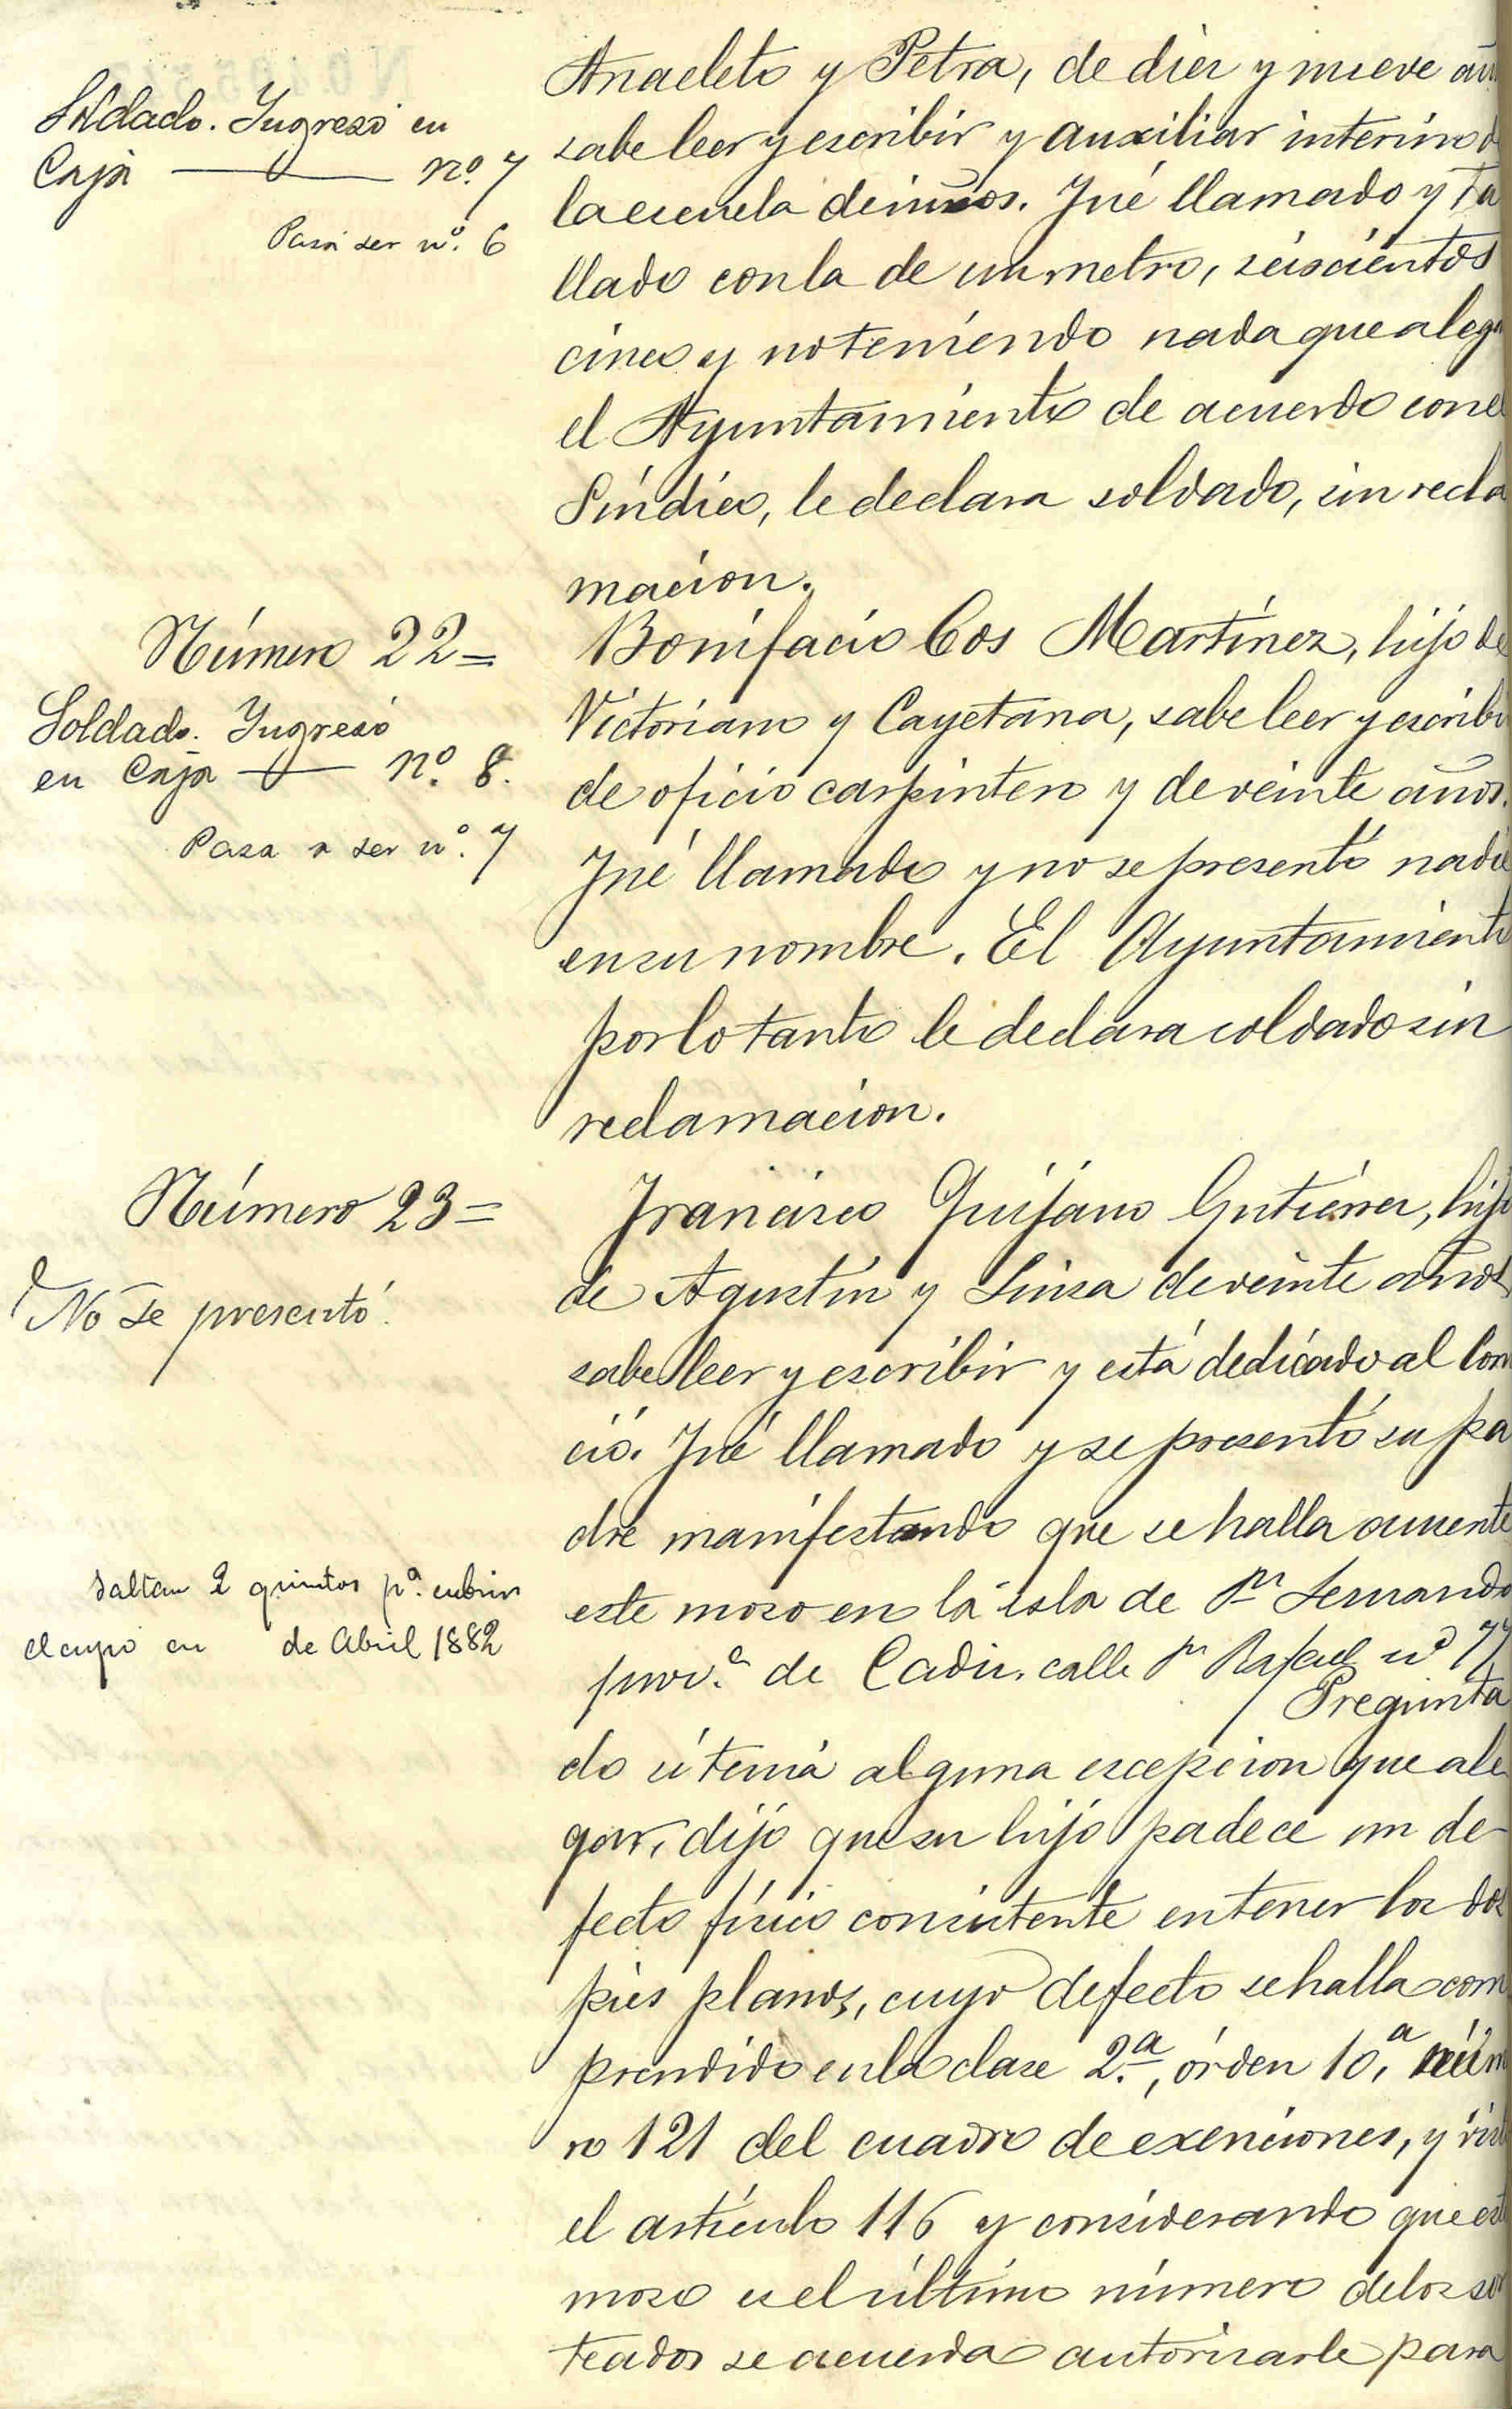 Soldado. Ingresó en
Caja — nº. 7
Pasa ser nº. 6
Anacleto y Petra, de diez y nueve añ
sabe leer y escribir y auxiliar interino d
la escuela de niños. Fué llamado y ta
llado con la de un metro, seiscientos
cinco y no teniendo nada que alega
el Ayuntamiento de acuerdo con el
Síndico, le declara soldado, sin recla
macion.
Número 22=
Soldado. Ingresó
en Caja — nº. 8.
Pasa a ser nº. 7
Bonifacio Cos Martínez, hijo de
Victoriano y Cayetana, sabe leer y escribi
de oficio carpintero y de veinte años.
Fué llamado y no se presentó nadie
en su nombre. El Ayuntamiento
por lo tanto le declara soldado sin
reclamacion.
Número 23=
No se presentó.
Faltan 2 quintos pª. cubrir
el cupo en de Abril 1882
Francisco Quijano Gutiérrez, hijo
de Agustín y Luisa de veinte años
sabe leer y escribir y está dedicado al Com
cio. Fué llamado y se presentó su pa
dre manifestando que se halla ausente
este mozo en la isla de Sn Fernando
provª. de Cadiz, calle Sn Rafael nº 77
Pregunta
do si tenía alguna escepcion que ale
gar, dijo que su hijo padece un de-
fecto físico consistente en tener los dos
piés planos, cuyo defecto se halla com
prendido en la clase 2.ª, órden 10.ª núm
ro 121 del cuadro de exenciones, y vist
el artículo 116 y considerando que est
mozo es el último número de los sor
teados se acuerda autorizarle para